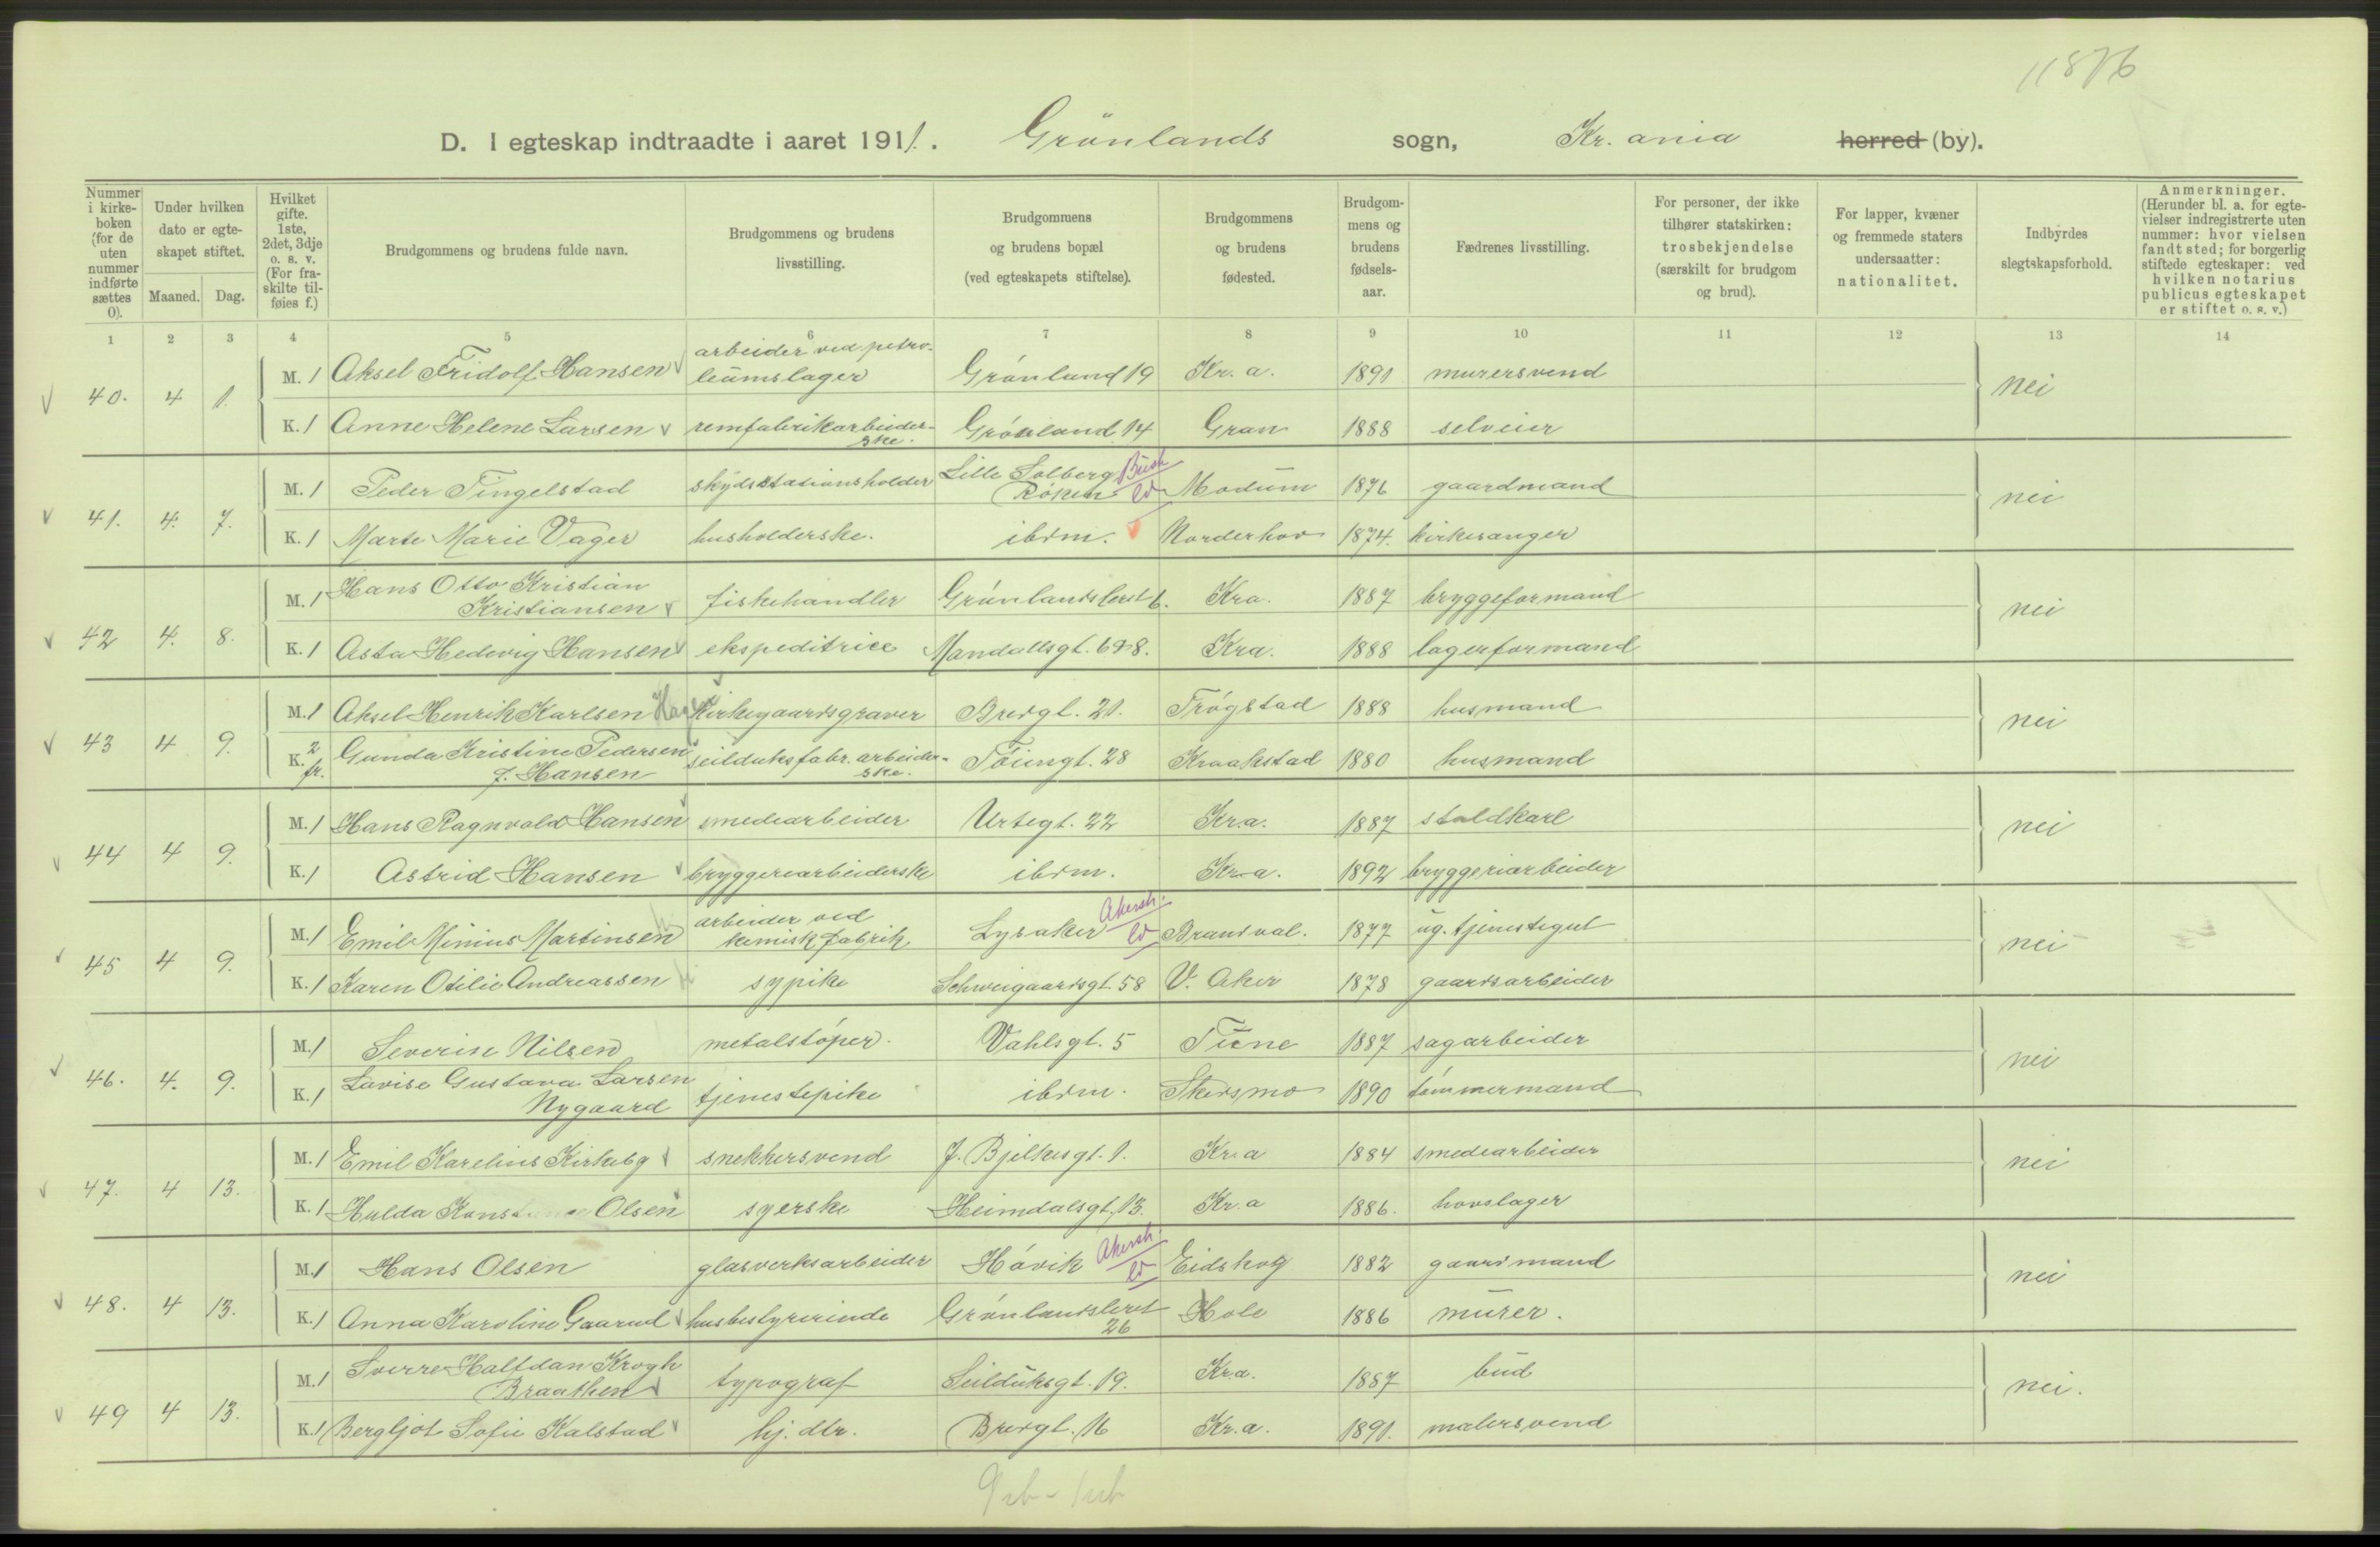 11876
D. I egteskap indtraadte i aaret 1911. Grønlands sogn, Kr. ania herred (by).
Nummer i kirkeboken (for de uten nummer indførte sættes 0).
Under hvilken dato er egteskapet stiftet.
Maaned. Dag.
Hvilket gifte. 1ste, 2det, 3dje o. s. v. (For fraskilte tilføies f.)
Brudgommens og brudens fulde navn.
Brudgommens og brudens livsstilling.
Brudgommens og brudens bopæl (ved egteskapets stiftelse).
Brudgommens og brudens fødested.
Brudgommens og brudens fødselsaar.
Fædrenes livsstilling.
For personer, der ikke tilhører statskirken: trosbekjendelse (særskilt for brudgom og brud).
For lapper, kvæner og fremmede staters undersaatter: nationalitet.
Indbyrdes slegtskapsforhold.
Anmerkninger. (Herunder bl. a. for egtevielser indregistrerte uten nummer: hvor vielsen fandt sted; for borgerlig stiftede egteskaper: ved hvilken notarius publicus egteskapet er stiftet o. s. v.)
1 2 3 4 5 6 7 8 9 10 11 12 13 14
40. 4 1. M. 1 Aksel Fridolf Hansen arbeider ved petroleumslager Grønland 19 Kr. a. 1891 murersvend nei
K. 1 Anne Helene Larsen remfabrikarbeiderske. Grønland 14 Gran 1888 selveier
41. 4. 7. M. 1 Peder Tingelstad skydsstationsholder Lille Solberg Røken Busk Modum 1876 gaardmand nei
K. 1 Marte Marie Vager husholderske. ibdm. Norderhov 1874. kirkesanger
42 4. 8. M. 1 Hans Otto Kristian Kristiansen fiskehandler Grønlandsleret 6. Kra. 1887 bryggeformand nei
K. 1 Asta Hedevig Hansen ekspeditrice Mandallsgt. 6&8. Kra. 1888 lagerformand
43 4 9. M. 1 Aksel Henrik Karlsen Hagen kirkegaardsgraver Bredgt. 21. Trøgstad 1888 husmand nei
K. 2 fr. Gunda Kristine Pedersen f. Hansen seilduksfabr. arbeiderske. Tøiengt. 28 Kraakstad 1880 husmand
44 4 9. M. 1 Hans Ragnvald Hansen smedearbeider Urtegt. 22 Kr.a. 1887 staldkarl nei
K. 1 Astrid Hansen bryggeriarbeiderske ibdm. Kr.a. 1892 bryggeriarbeider
45 4 9. M. 1 Emil Minius Martinsen arbeider ved kemisk fabrik Lysaker Akersh. Brandval. 1877 ug. tjenestegut nei
K. 1 Karen Otilie Andreassen sypike Schweigaardsgt. 58 V. Aker 1878 gaardsarbeider
46. 4. 9. M. 1 Severin Nilsen metalstøper. Vahlsgt. 5 Tune 1887 sagarbeider nei
K. 1 Lovise Gustava Larsen Nygaard tjenestepike ibdm. Skedsmo 1890 tømmermand
47. 4 13. M. 1 Emil Karelius Kirkeby snekkersvend J. Bjelkesgt. 1. Kr.a 1884 smedearbeider nei
K. 1 Hulda Olsen syerske Heimdalsgt. 13. Kr.a 1886. hovslager
48. 4 13. M. 1 Hans Olsen glasverksarbeider Høvik Akersh. Eidskog 1882 gaardmand nei
K. 1 Anna Karoline Gaarud husbestyrerinde Grønlandsleret 26 Hole 1886 murer.
49 4 13. M. 1 Sverre Halfdan Krogh Braathen typograf Seilduksgt. 19. Kr.a. 1887 bud nei.
K. 1 Bergljot Sofie Kalstad hj. dtr. Bredgt. 16 Kr.a. 1891. malersvend